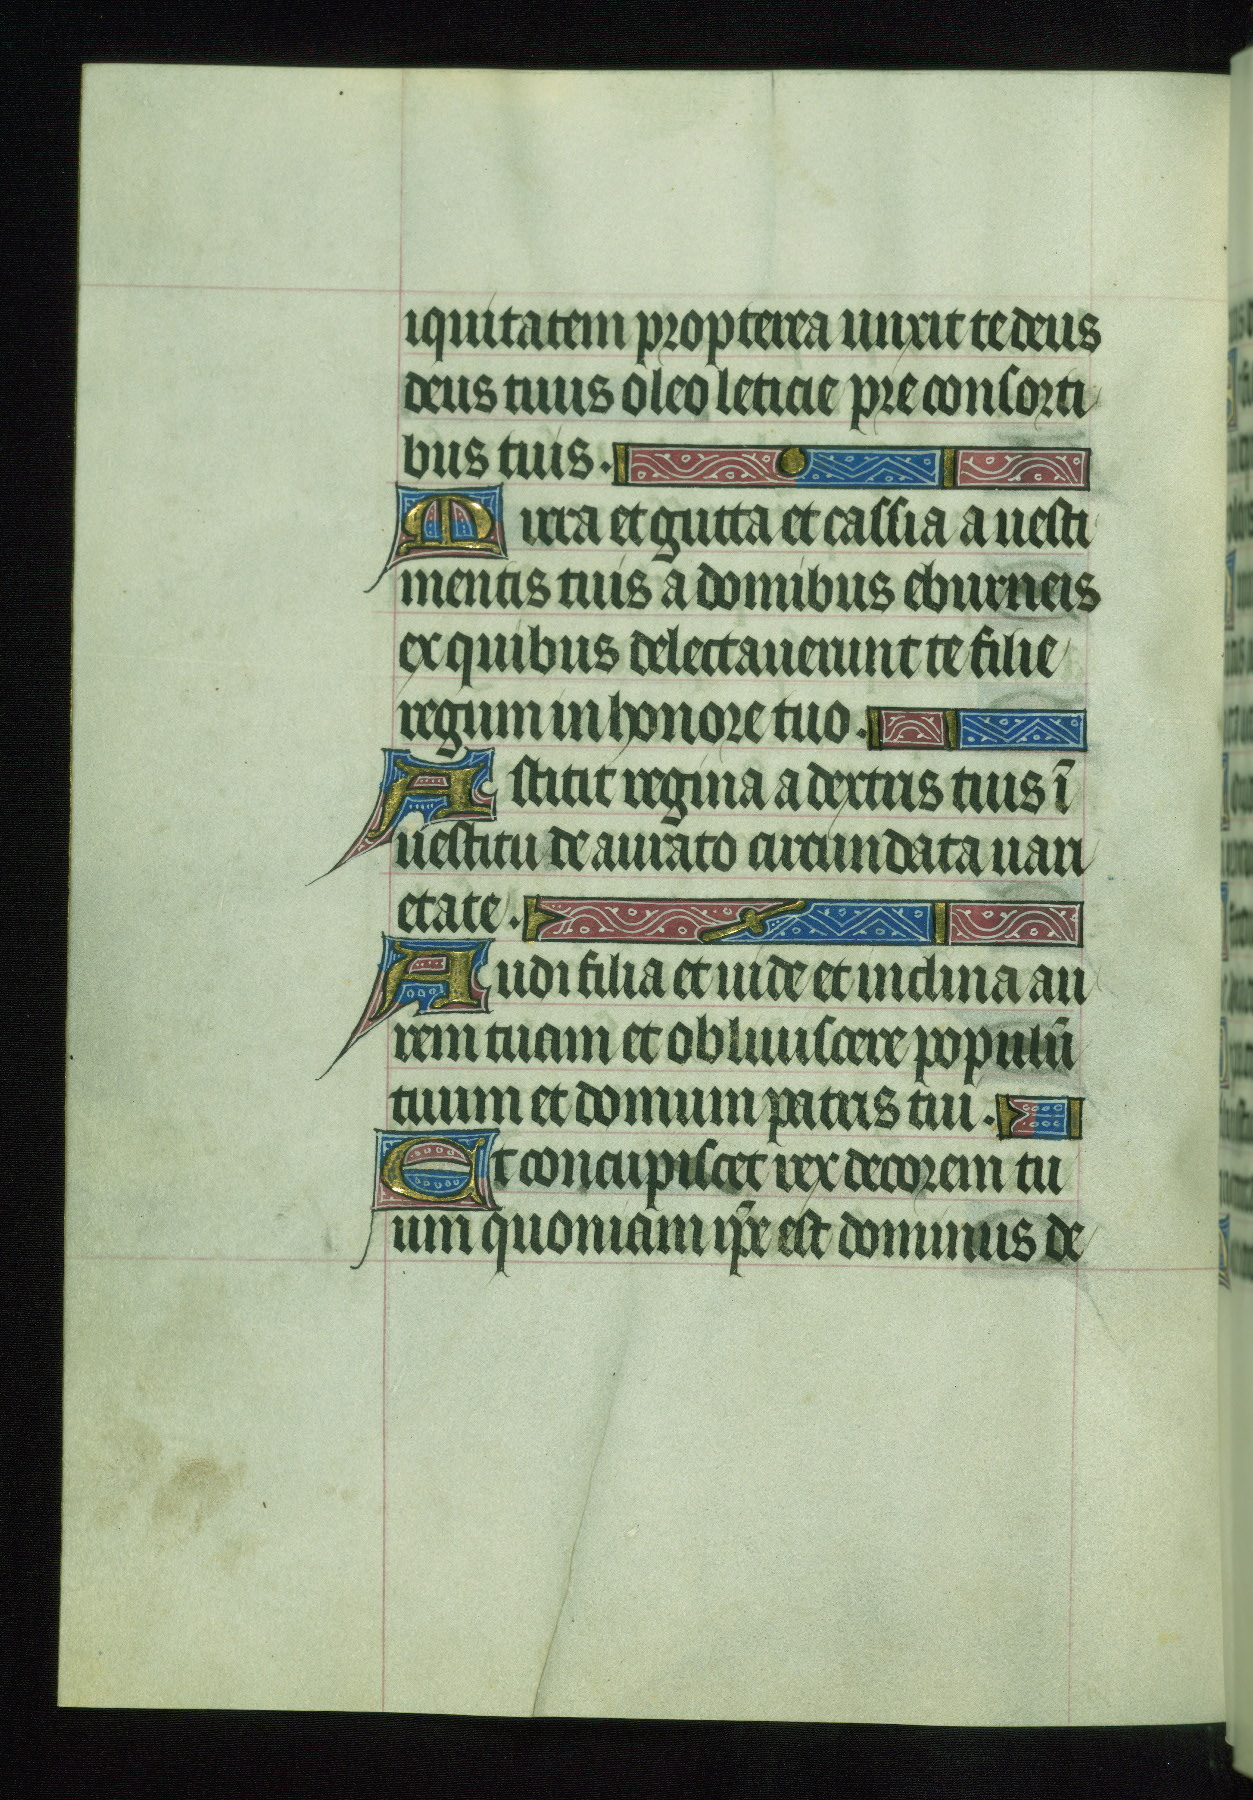 iquitatem propterea unxit te deus
deus tuus oleo leticie pre consorti
bus tuis.
Mirra et gutta et cassia a uesti
mentis tuis a domibus eburneis
ex quibus delectauerunt te filie
regum in honore tuo.
Astitit regina a dextris tuis ī
uestitu de aurato circundata uari
etate.
Audi filia et uide et inclina au
rem tuam et obliuiscere populū
tuum et domum patris tui.
Et concupiscet rex decorem tu
um quoniam ip̄e est dominus de